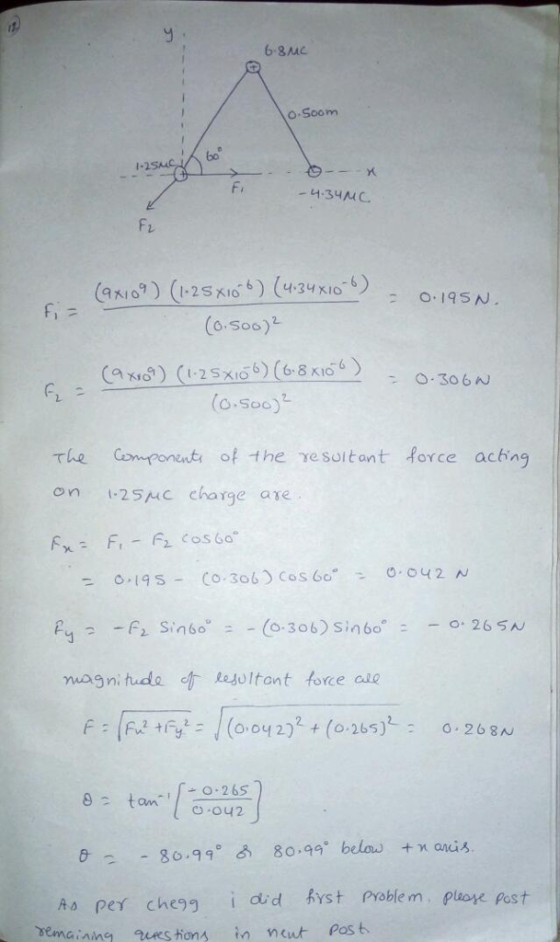 12)
y
6.8MC
0.500m
60°
1.25MC
x
F₁
-4.34MC.
F₂
F₁ = (9×10⁹) (1.25×10⁻⁶) (4.34×10⁻⁶) / (0.500)² = 0.195N.
F₂ = (9×10⁹) (1.25×10⁻⁶) (6.8×10⁻⁶) / (0.500)² = 0.306N
The Components of the resultant force acting
on 1.25MC charge are.
Fx = F₁ - F₂ cos60°
= 0.195 - (0.306) cos60° = 0.042 N
Fy = -F₂ Sin60° = -(0.306) Sin60° = -0.265N
magnitude of resultant force are
F = √(Fx² + Fy²) = √((0.042)² + (0.265)²) = 0.268N
θ = tan⁻¹ [-0.265 / 0.042]
θ = -80.99° or 80.99° below +x axis.
As per chegg i did first problem. please post
remaining questions in next post.